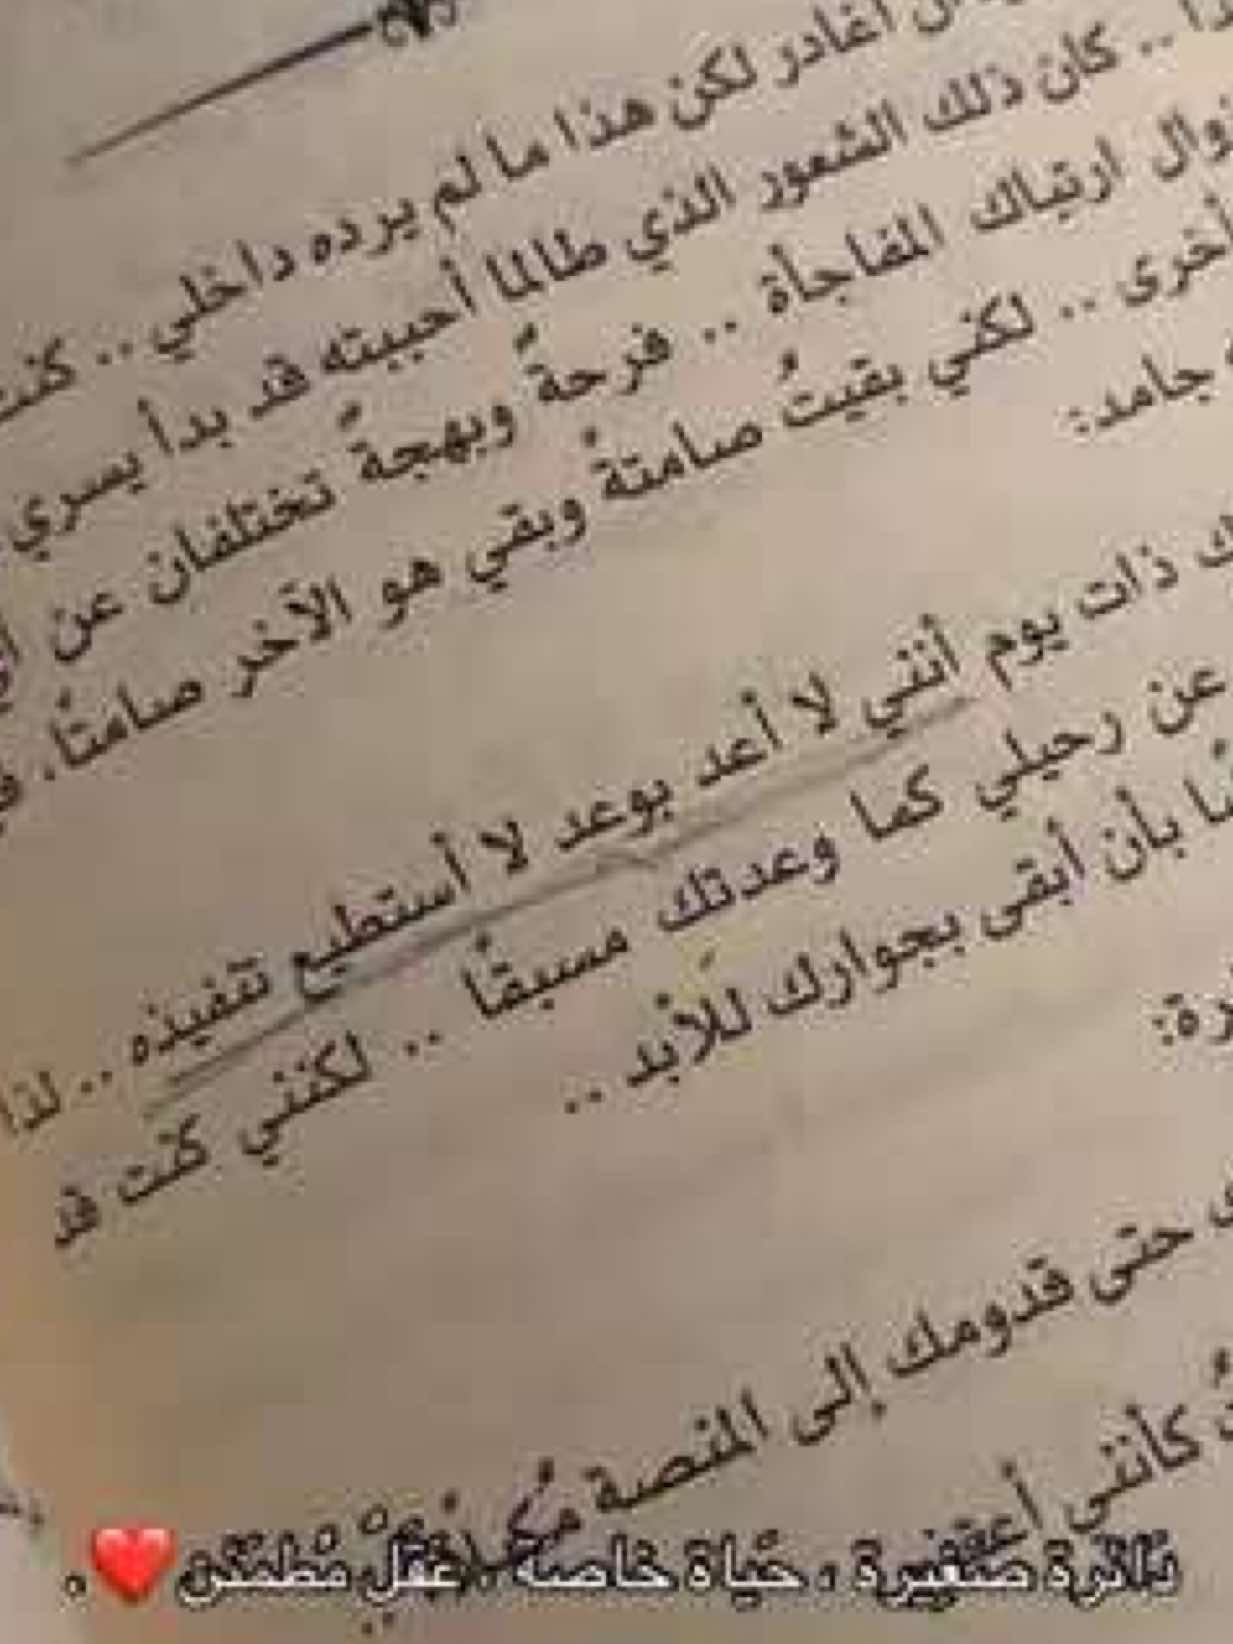 أغادر لكن هذا ما لم يرده داخلي .. كنت
.. كان ذلك الشعور الذي طالما أحببته قد بدأ يسري
زوال ارتباك المفاجأة .. فرحةً وبهجةً تختلفان عن
أخرى .. لكني بقيتُ صامتةً وبقي هو الآخر صامتًا.
جامد:
ذات يوم أنني لا أعد بوعد لا أستطيع تنفيذه .. لذا
عن رحيلي كما وعدتك مسبقًا .. لكنني كنت قد
بأن أبقى بجوارك للأبد ..
حتى قدومك إلى المنصة
كأنني
دائرة صغيرة ، حياة خاصة ، عقل مطمئن ❤️ ه